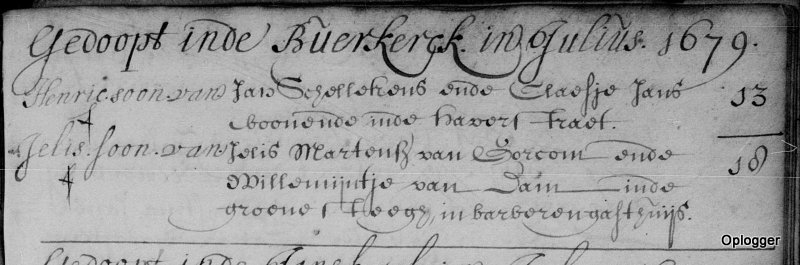 Gedoopt inde Buerkerck. in Julius. 1679.
Henric. soon. van Jan Schellekens ende Claesje Jans 13
woonende inde haverstraet.
Jelis. soon. van Jelis Martensz van Gorcom ende 18
Willemijntje van Dam inde
groene steegh, in barberengasthuijs.
Gedoopt inde
Oplogger